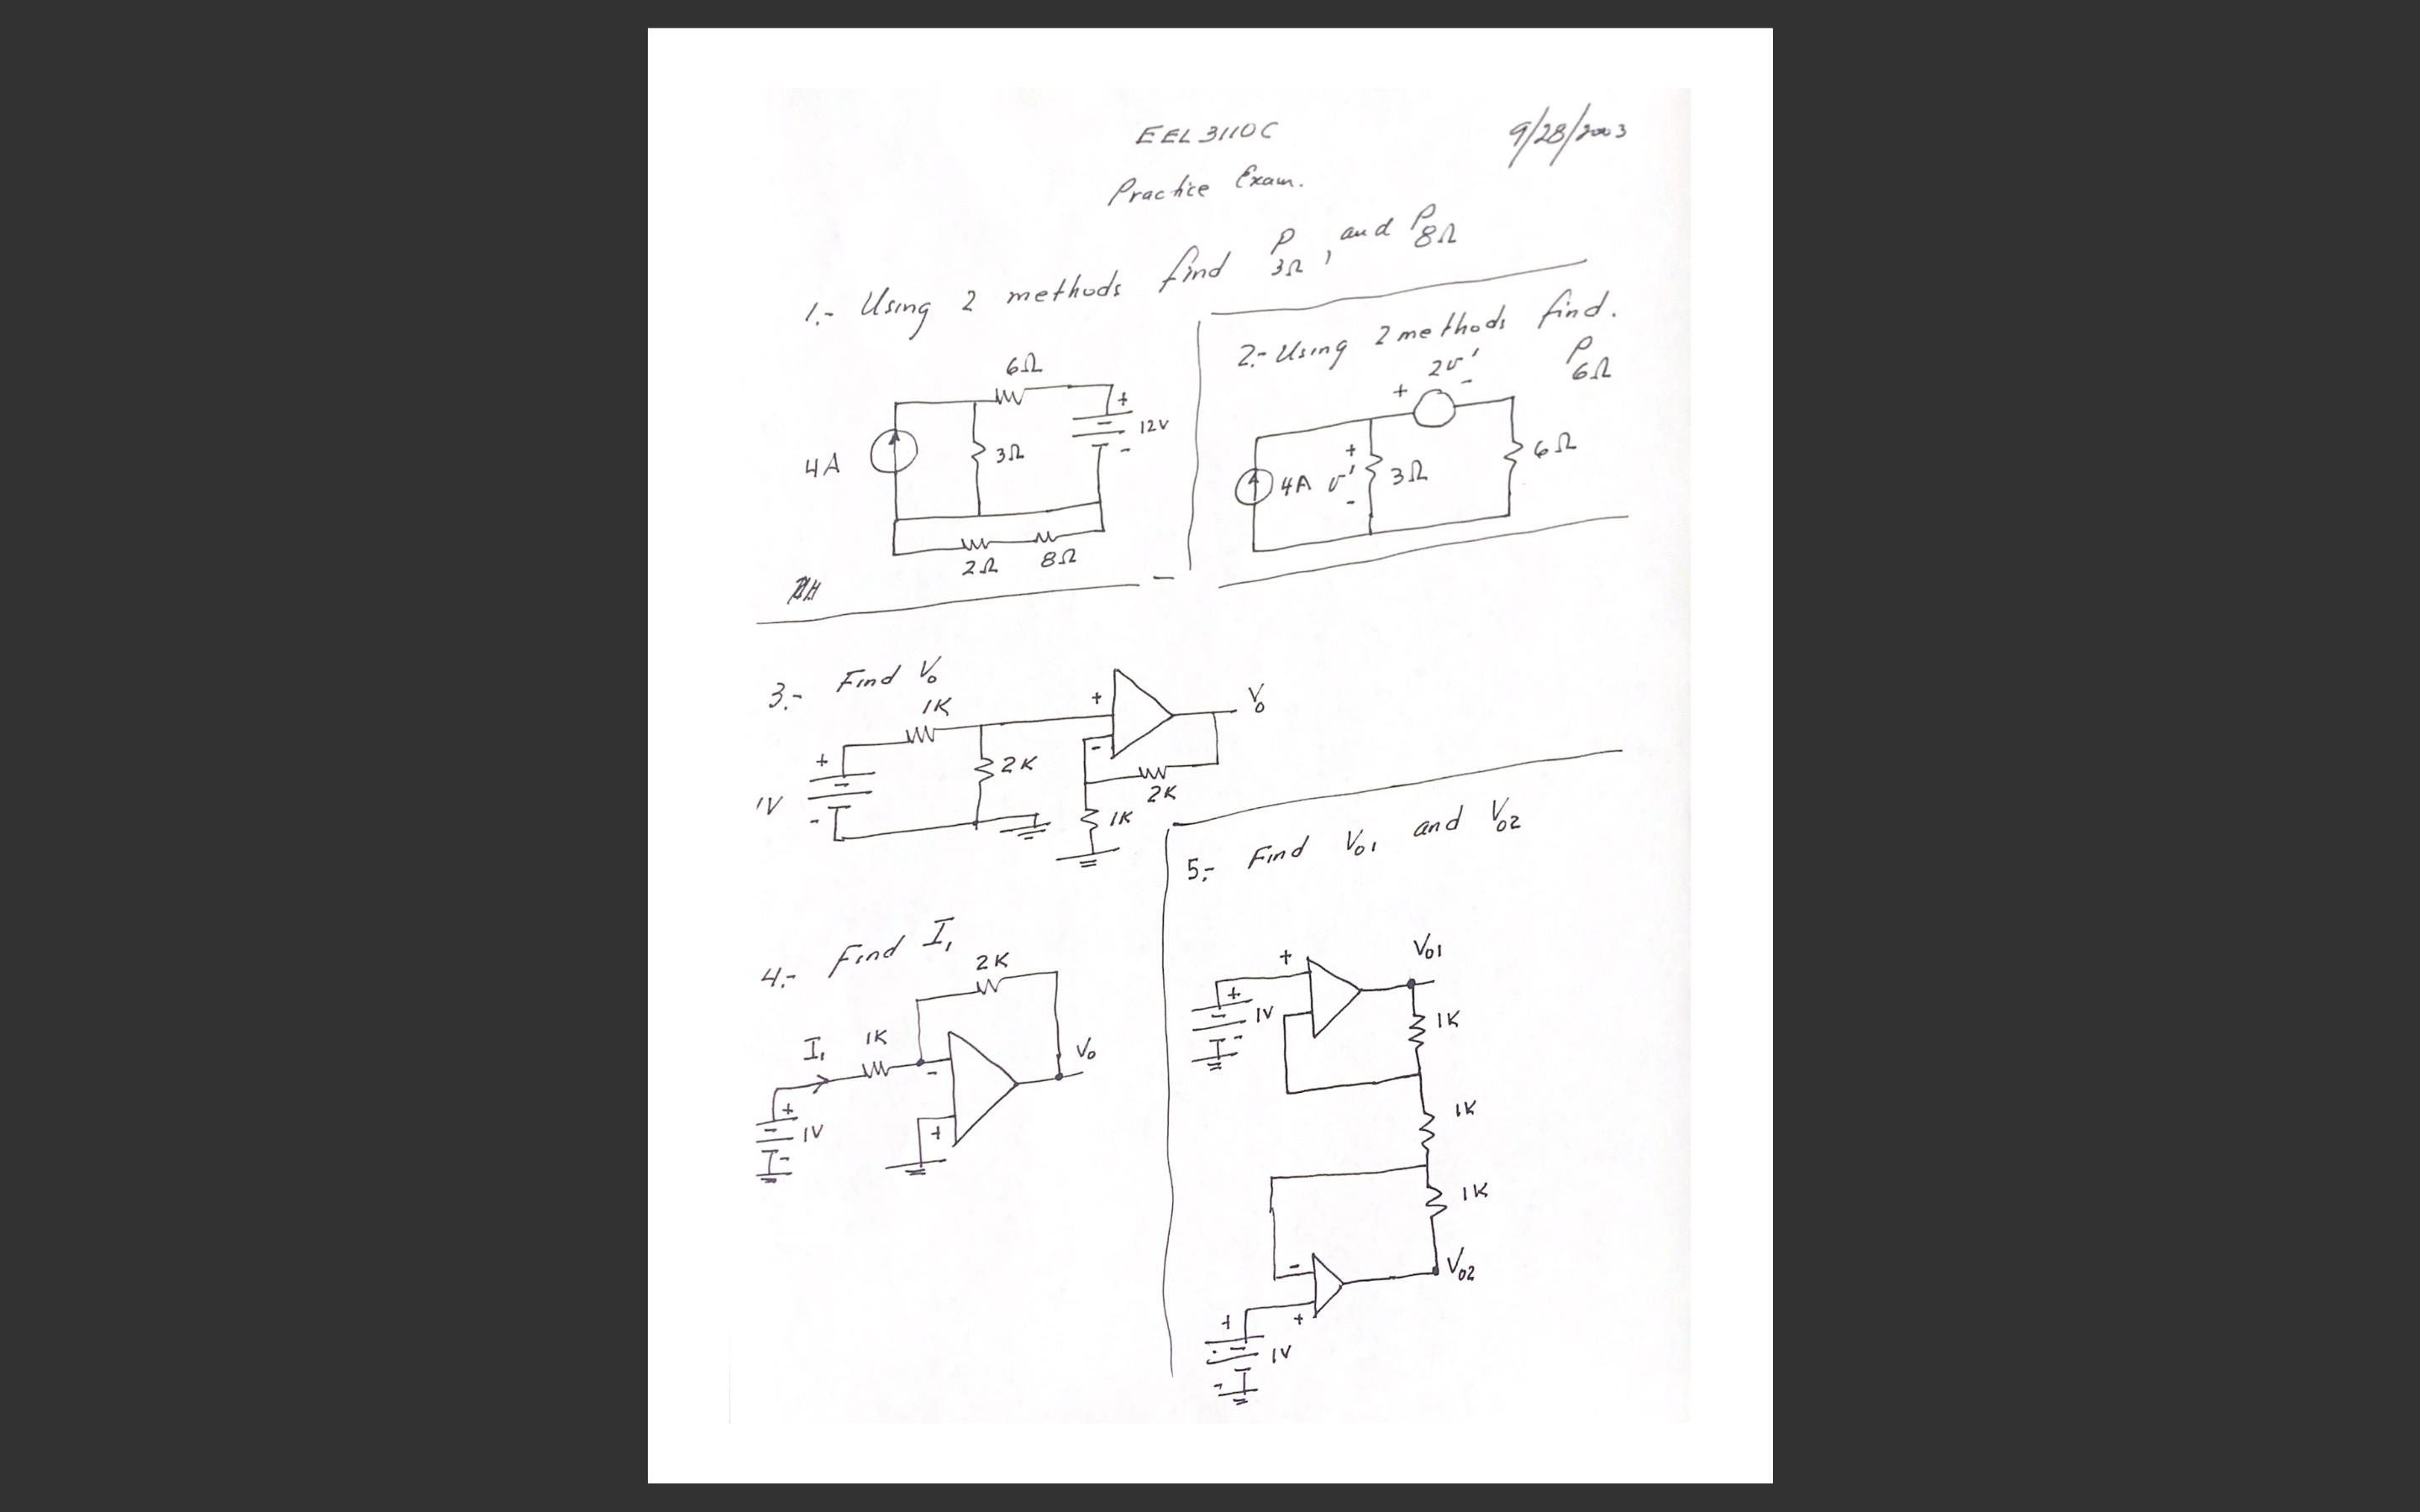 EEL 3110C
9/28/2003
Practice Exam.
1.- Using 2 methods find P3Ω, and P8Ω
6Ω
+
4A
3Ω
12V
-
2Ω
8Ω
2.- Using 2 methods find.
P6Ω
2v'
+ -
4A
+
v'
-
3Ω
6Ω
3.- Find Vo
1K
+
1V
-
2K
+
-
Vo
2K
1K
4.- Find I1
2K
I1
1K
-
Vo
+
1V
-
+
5.- Find Vo1 and Vo2
+
Vo1
+
1V
-
1K
1K
1K
-
Vo2
+
+
1V
-